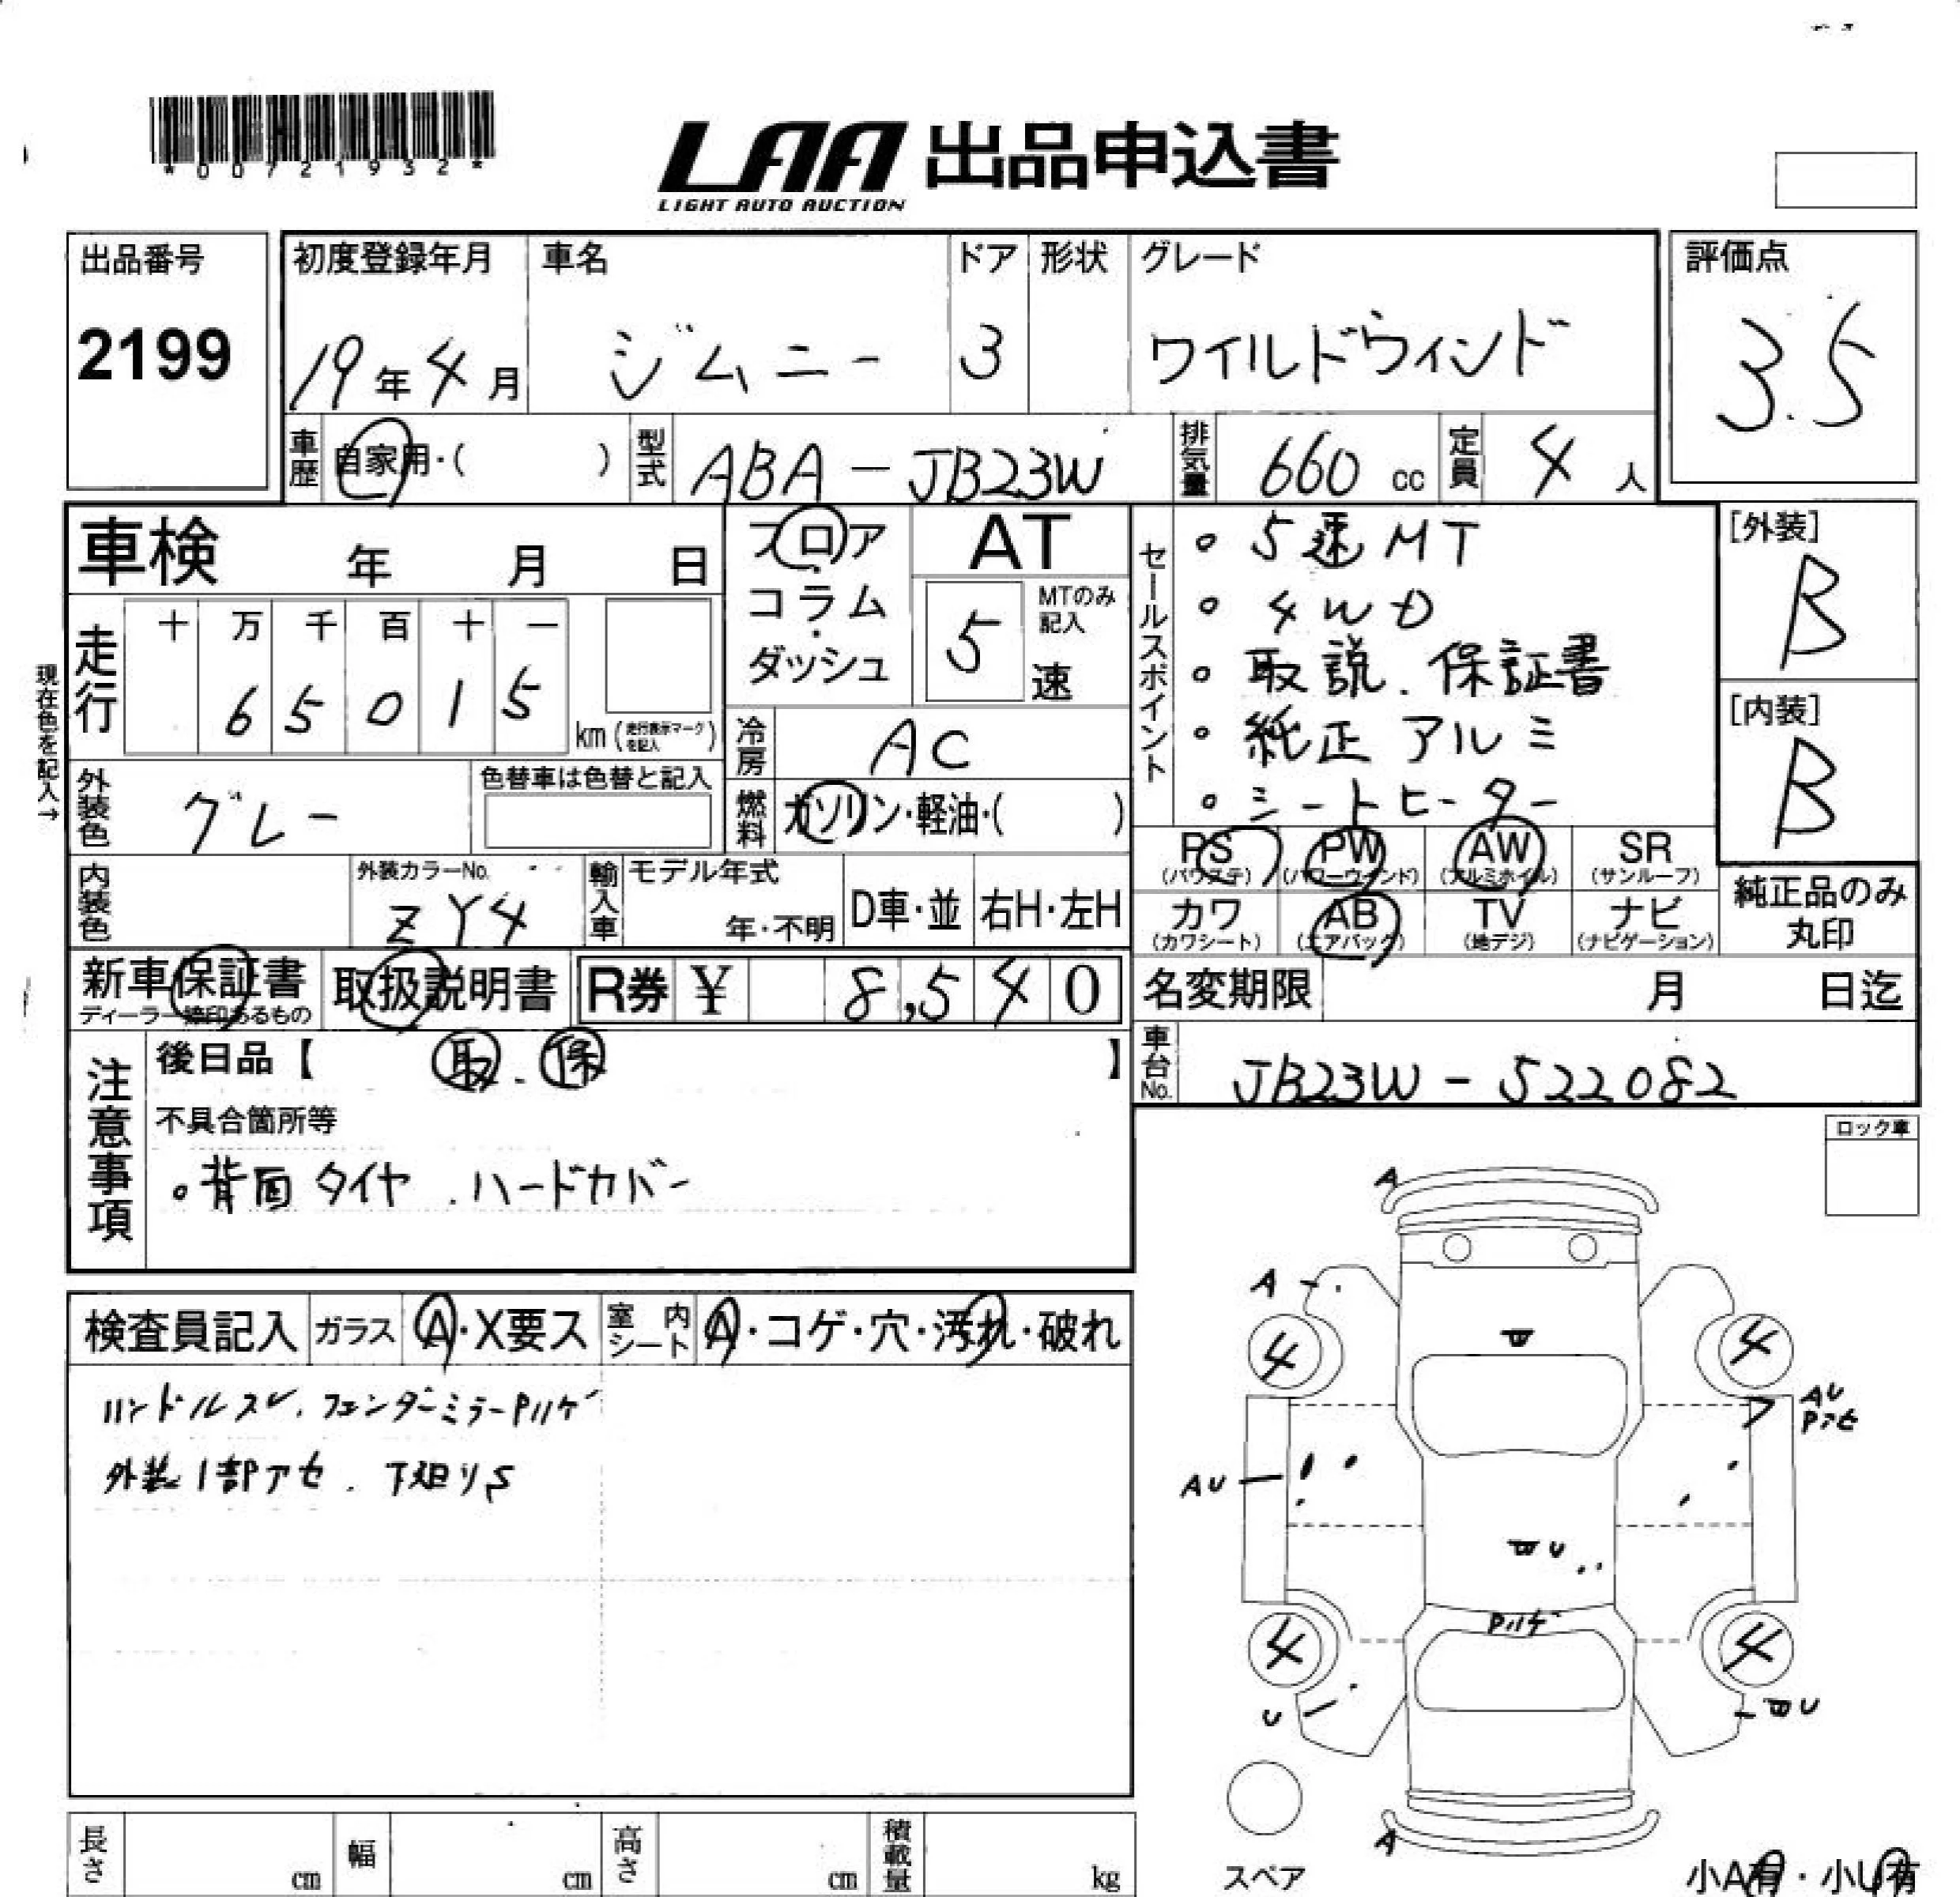 *00721932*
LAA 出品申込書
LIGHT AUTO AUCTION
出品番号
2199
初度登録年月
19年4月
車名
ジムニー
ドア
3
形状
グレード
ワイルドウィンド
評価点
3.5
車歴
自家用・( )
型式
ABA-JB23W
排気量
660 cc
定員
4 人
車検 年 月 日
フロア・コラム・ダッシュ
AT
5
MTのみ記入
速
セールスポイント
○ 5速MT
○ 4WD
○ 取説.保証書
○ 純正アルミ
○ シートヒーター
[外装]
B
[内装]
B
現在色を記入→
走行
十 万 千 百 十 一
6 5 0 1 5
km(走行表示マークを記入)
冷房
AC
外装色
グレー
色替車は色替と記入
燃料
ガソリン・軽油・( )
PS (パワステ)
PW (パワーウインド)
AW (アルミホイル)
SR (サンルーフ)
カワ (カワシート)
AB (エアバック)
TV (地デジ)
ナビ (ナビゲーション)
純正品のみ丸印
内装色
外装カラーNo.
ZY4
輸入車
モデル年式
年・不明
D車・並
右H・左H
新車保証書
ディーラー捺印あるもの
取扱説明書
R券 ¥ 8,540
名変期限 月 日迄
注意事項
後日品【 取.保 】
不具合箇所等
○背面タイヤ.ハードカバー
車台No.
JB23W-522082
ロック車
検査員記入
ガラス
A・X要ス
室内シート
A・コゲ・穴・汚れ・破れ
ハンドルスレ.フェンダーミラーPハゲ
外装1部アセ.下廻りS
A
A
4
4
AU
Pアセ
AU
U
Pハゲ
4
4
U
U
A
スペア
小A有・小U有
長さ cm
幅 cm
高さ cm
積載量 kg